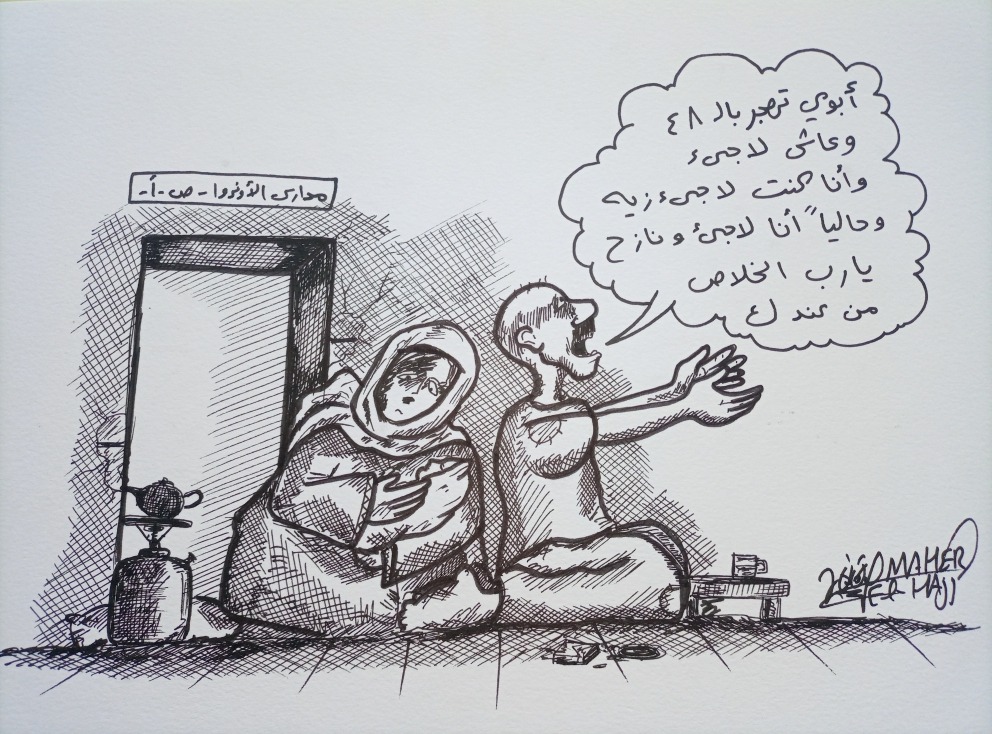 مدارس الأونروا - ص - أ -
أبوي تهجر بالـ ٤٨
وعاش لاجىء
وأنا كنت لاجىء زيه
وحالياً أنا لاجئ و نازح
يارب الخلاص
من عندك
MAHER
HAJJ